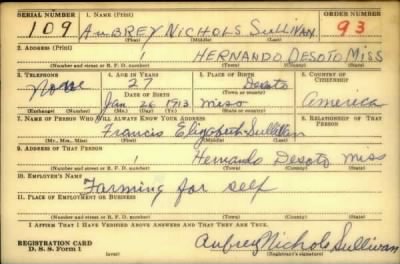 SERIAL NUMBER 1. NAME (Print) ORDER NUMBER
109 AUBREY NICHOLS SULLIVAN 93
(First) (Middle) (Last)
2. ADDRESS (Print)
HERNANDO DESOTO MISS
(Number and street or R. F. D. number) (Town) (County) (State)
3. TELEPHONE 4. AGE IN YEARS 5. PLACE OF BIRTH 6. COUNTRY OF CITIZENSHIP
None 27 Desoto
DATE OF BIRTH (Town or county)
Jan 26 1913 miss America
(Exchange) (Number) (Mo.) (Day) (Yr.) (State or country)
7. NAME OF PERSON WHO WILL ALWAYS KNOW YOUR ADDRESS 8. RELATIONSHIP OF THAT PERSON
Francis Elizabeth Sullivan
(Mr., Mrs., Miss) (First) (Middle) (Last)
9. ADDRESS OF THAT PERSON
Hernando Desoto miss
(Number and street or R. F. D. number) (Town) (County) (State)
10. EMPLOYER'S NAME
Farming for self
11. PLACE OF EMPLOYMENT OR BUSINESS
(Number and street or R. F. D. number) (Town) (County) (State)
I AFFIRM THAT I HAVE VERIFIED ABOVE ANSWERS AND THAT THEY ARE TRUE.
REGISTRATION CARD
D. S. S. Form 1 Aubrey Nichols Sullivan
(over) (Registrant's signature)